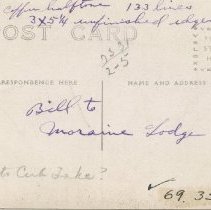 Copper halftone 133 lines
3x5¼ unfinished edges
POST CARD
2-5
CORRESPONDENCE HERE
NAME AND ADDRESS
Bill to
Moraine Lodge
Cub Lake?
✓ 69.33